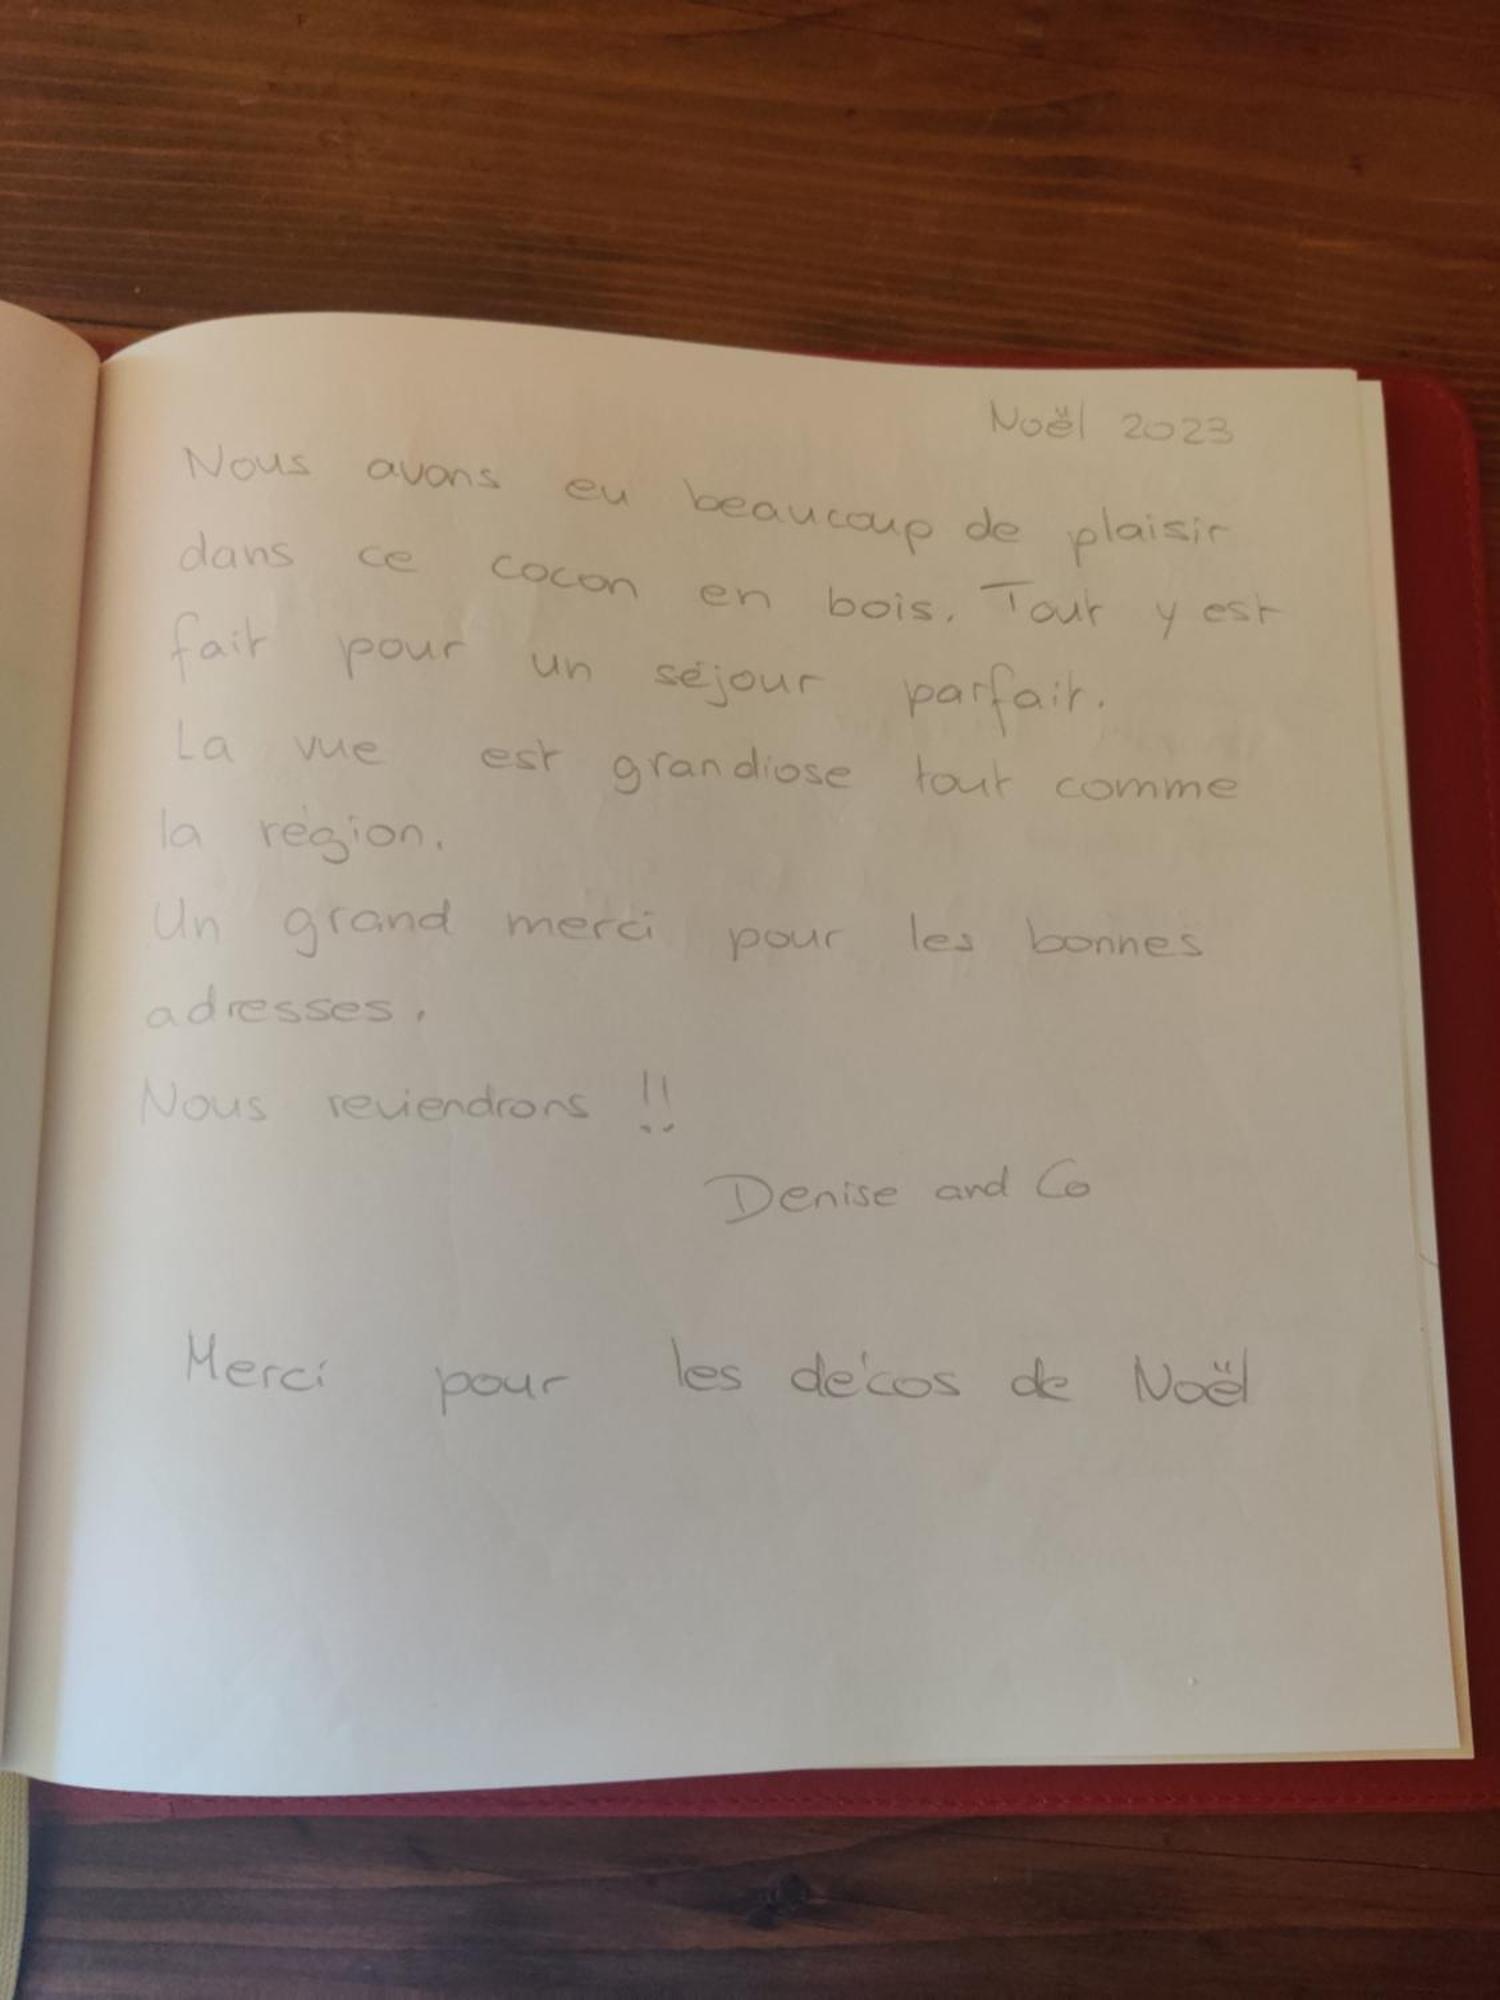 Noël 2023
Nous avons eu beaucoup de plaisir
dans ce cocon en bois. Tout y est
fait pour un séjour parfait.
La vue est grandiose tout comme
la région.
Un grand merci pour les bonnes
adresses.
Nous reviendrons !!
Denise and Co
Merci pour les décos de Noël